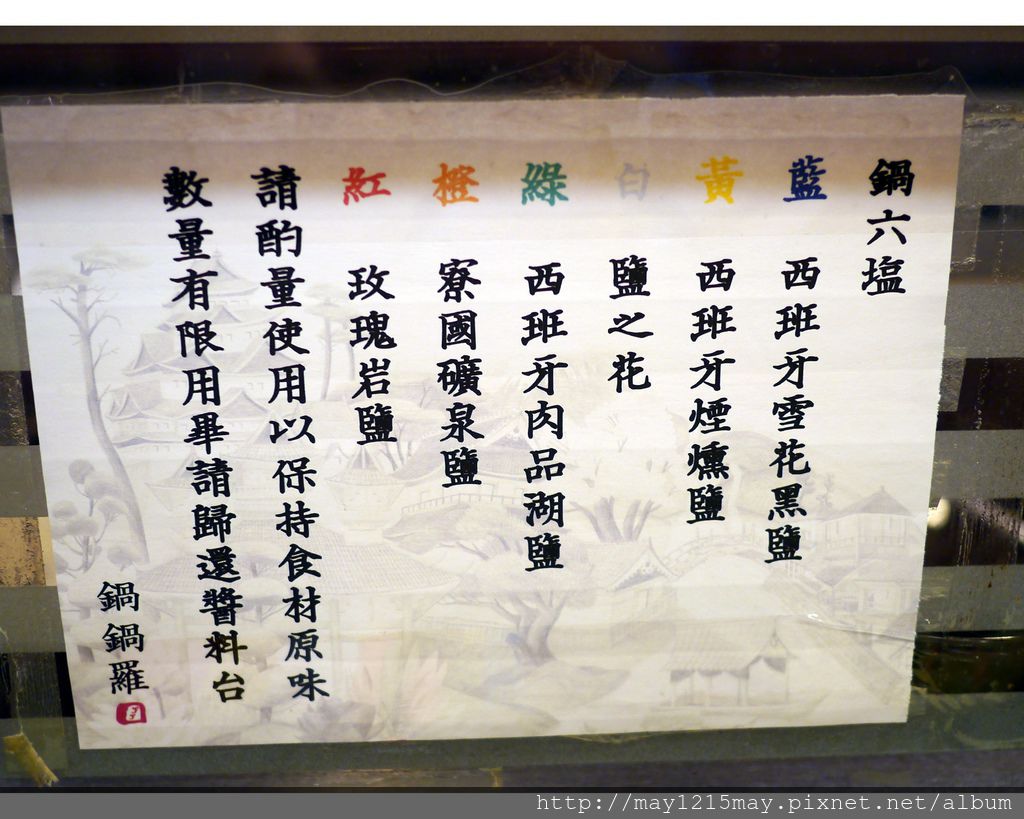 鍋六塩
藍 西班牙雪花黑鹽
黃 西班牙煙燻鹽
白 鹽之花
綠 西班牙肉品湖鹽
橙 寮國礦泉鹽
紅 玫瑰岩鹽
請酌量使用以保持食材原味
數量有限用畢請歸還醬料台
鍋鍋羅
http://may1215may.pixnet.net/album